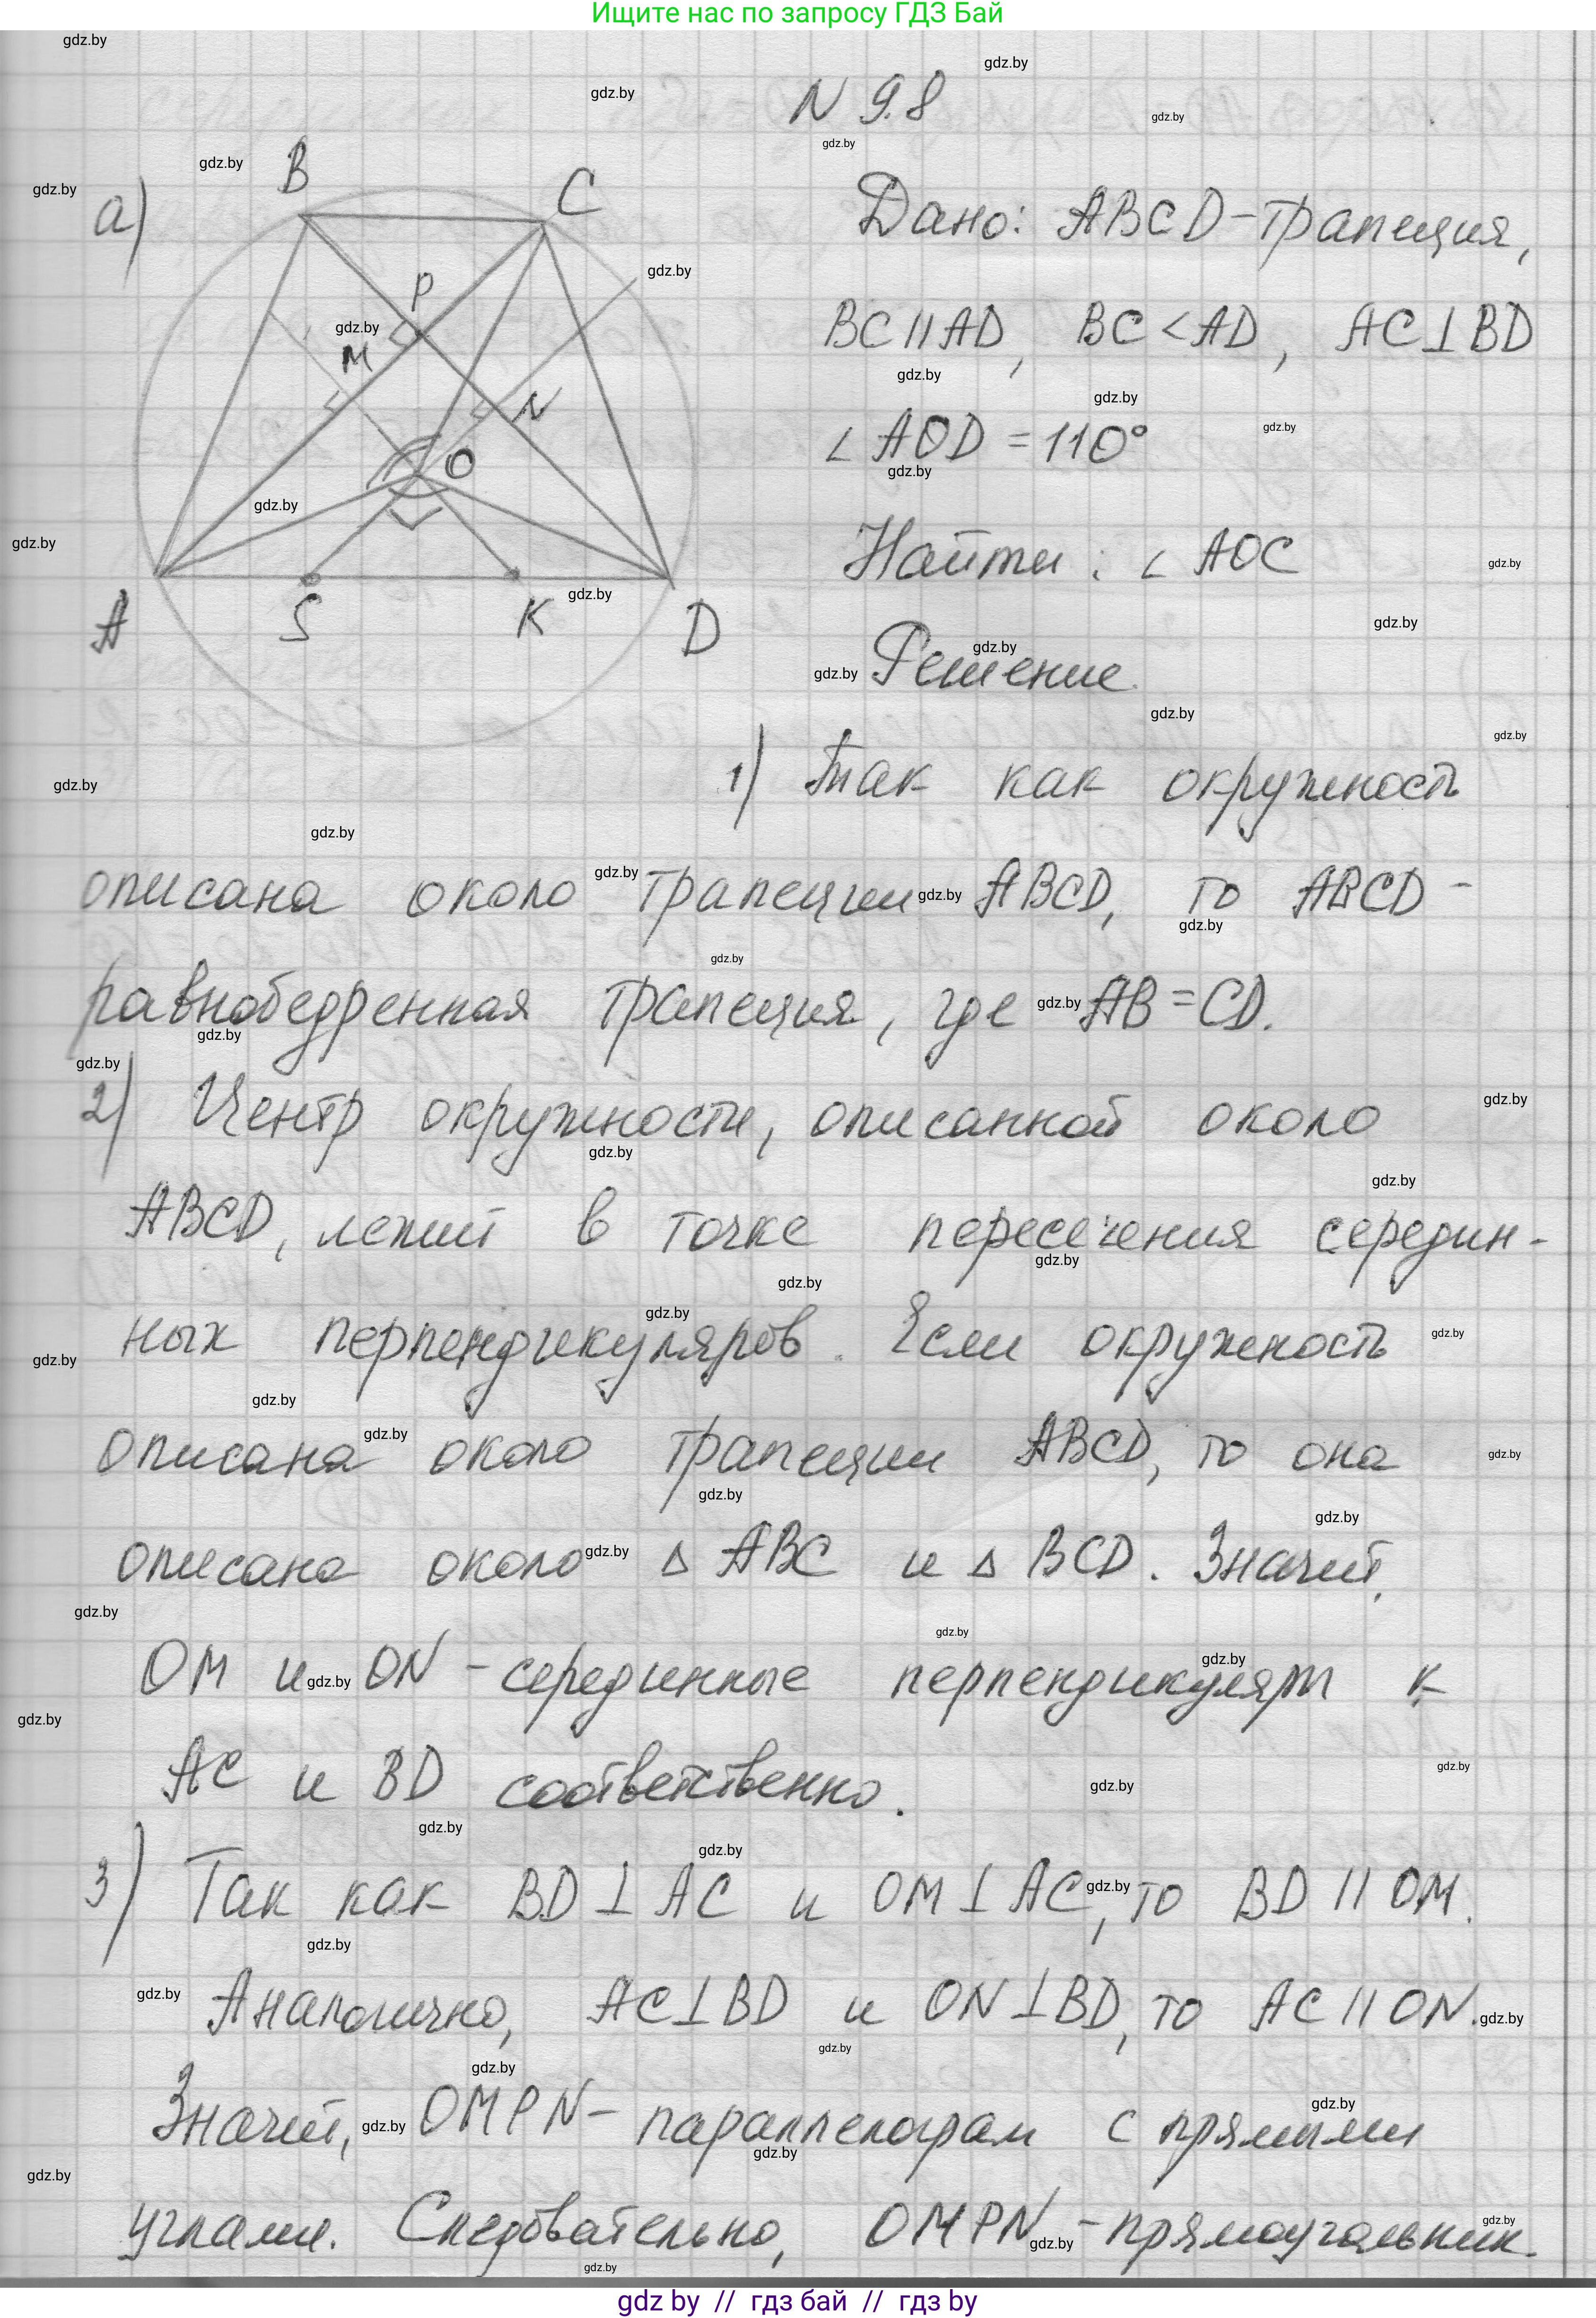 Ищите нас по запросу ГДЗ Бай
N 9.8
а)
B
C
P
M
N
O
A
S
K
D
Дано: ABCD-трапеция,
BC||AD, BC<AD, AC⊥BD
∠AOD=110°
Найти: ∠AOC
Решение.
1) Так как окружность
описана около трапеции ABCD, то ABCD-
равнобедренная трапеция, где AB=CD.
2) Центр окружности, описанной около
ABCD, лежит в точке пересечения середин-
ных перпендикуляров. Если окружность
описана около трапеции ABCD, то она
описана около Δ ABC и Δ BCD. Значит,
OM и ON - серединные перпендикуляры к
AC и BD соответственно.
3) Так как BD⊥AC и OM⊥AC, то BD||OM.
Аналогично, AC⊥BD и ON⊥BD, то AC||ON.
Значит, OMPN- параллелограм с прямыми
углами. Следовательно, OMPN-прямоугольник.
gdz by // гдз бай // гдз by